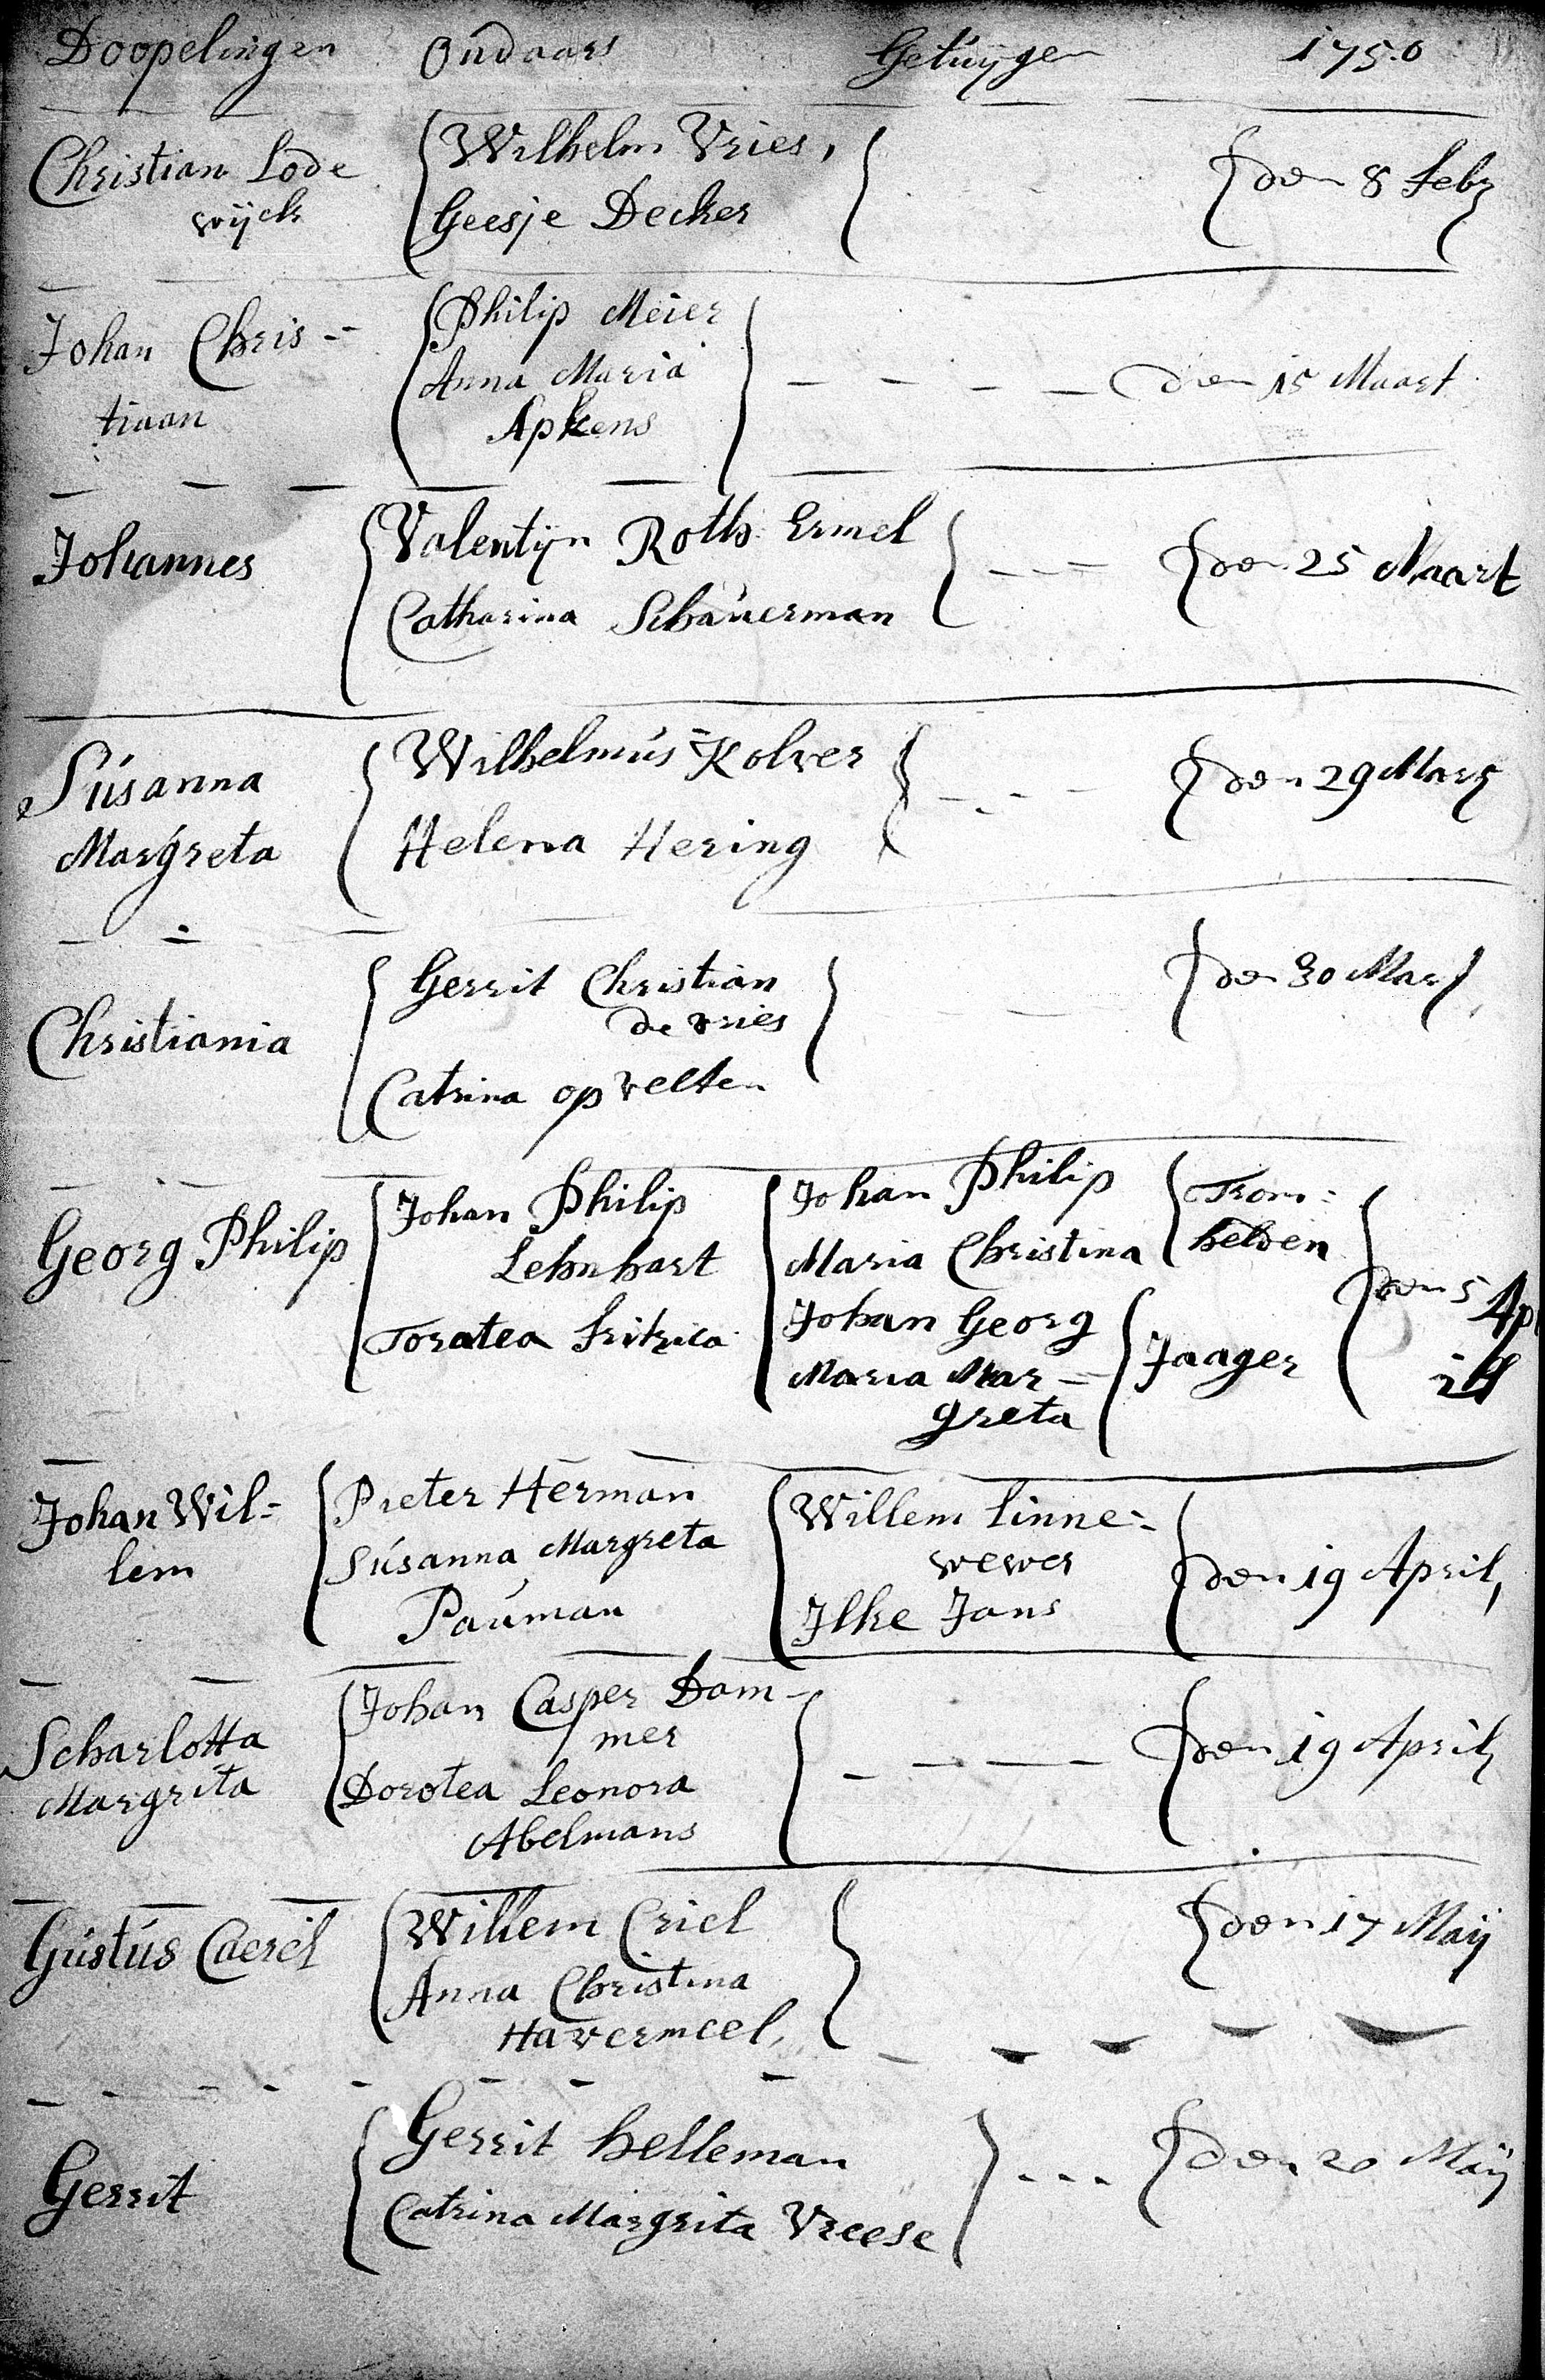 Doopelingen Oudaars Getuijgen 1750
Christian Lode
wijck
Wilhelm Vries,
Geesje Decker
den 8 Febr
Johan Chris-
tiaan
Philip Meier
Anna Maria
Apkens
den 15 Maart
Johannes
Valentijn Roth Ermel
Catharina Schauerman
den 25 Maart
Susanna
Margreta
Wilhelmus Kolver
Helena Hering
den 29 Mar
Christiania
Gerrit Christian
de vries
Catrina op velten
den 30 Mar
Georg Philip
Johan Philip
Lehnhart
Toratea Fritrica
Johan Philip
Maria Christina
Trom:
helden
Johan Georg
Maria Mar-
greta
Jaager
den 5 Ap
ril
Johan Wil-
lem
Pieter Herman
Susanna Margreta
Pauman
Willem Linne-
wewer
Ilke Jans
den 19 April,
Scharlotta
Margrita
Johan Casper Dam-
mer
Dorotea Leonora
Abelmans
den 19 April
Gustus Caerel
Willem Criel
Anna Christina
Havermeel,
den 17 Maij
Gerrit
Gerrit helleman
Catrina Margrita Vreese
den 20 Maij